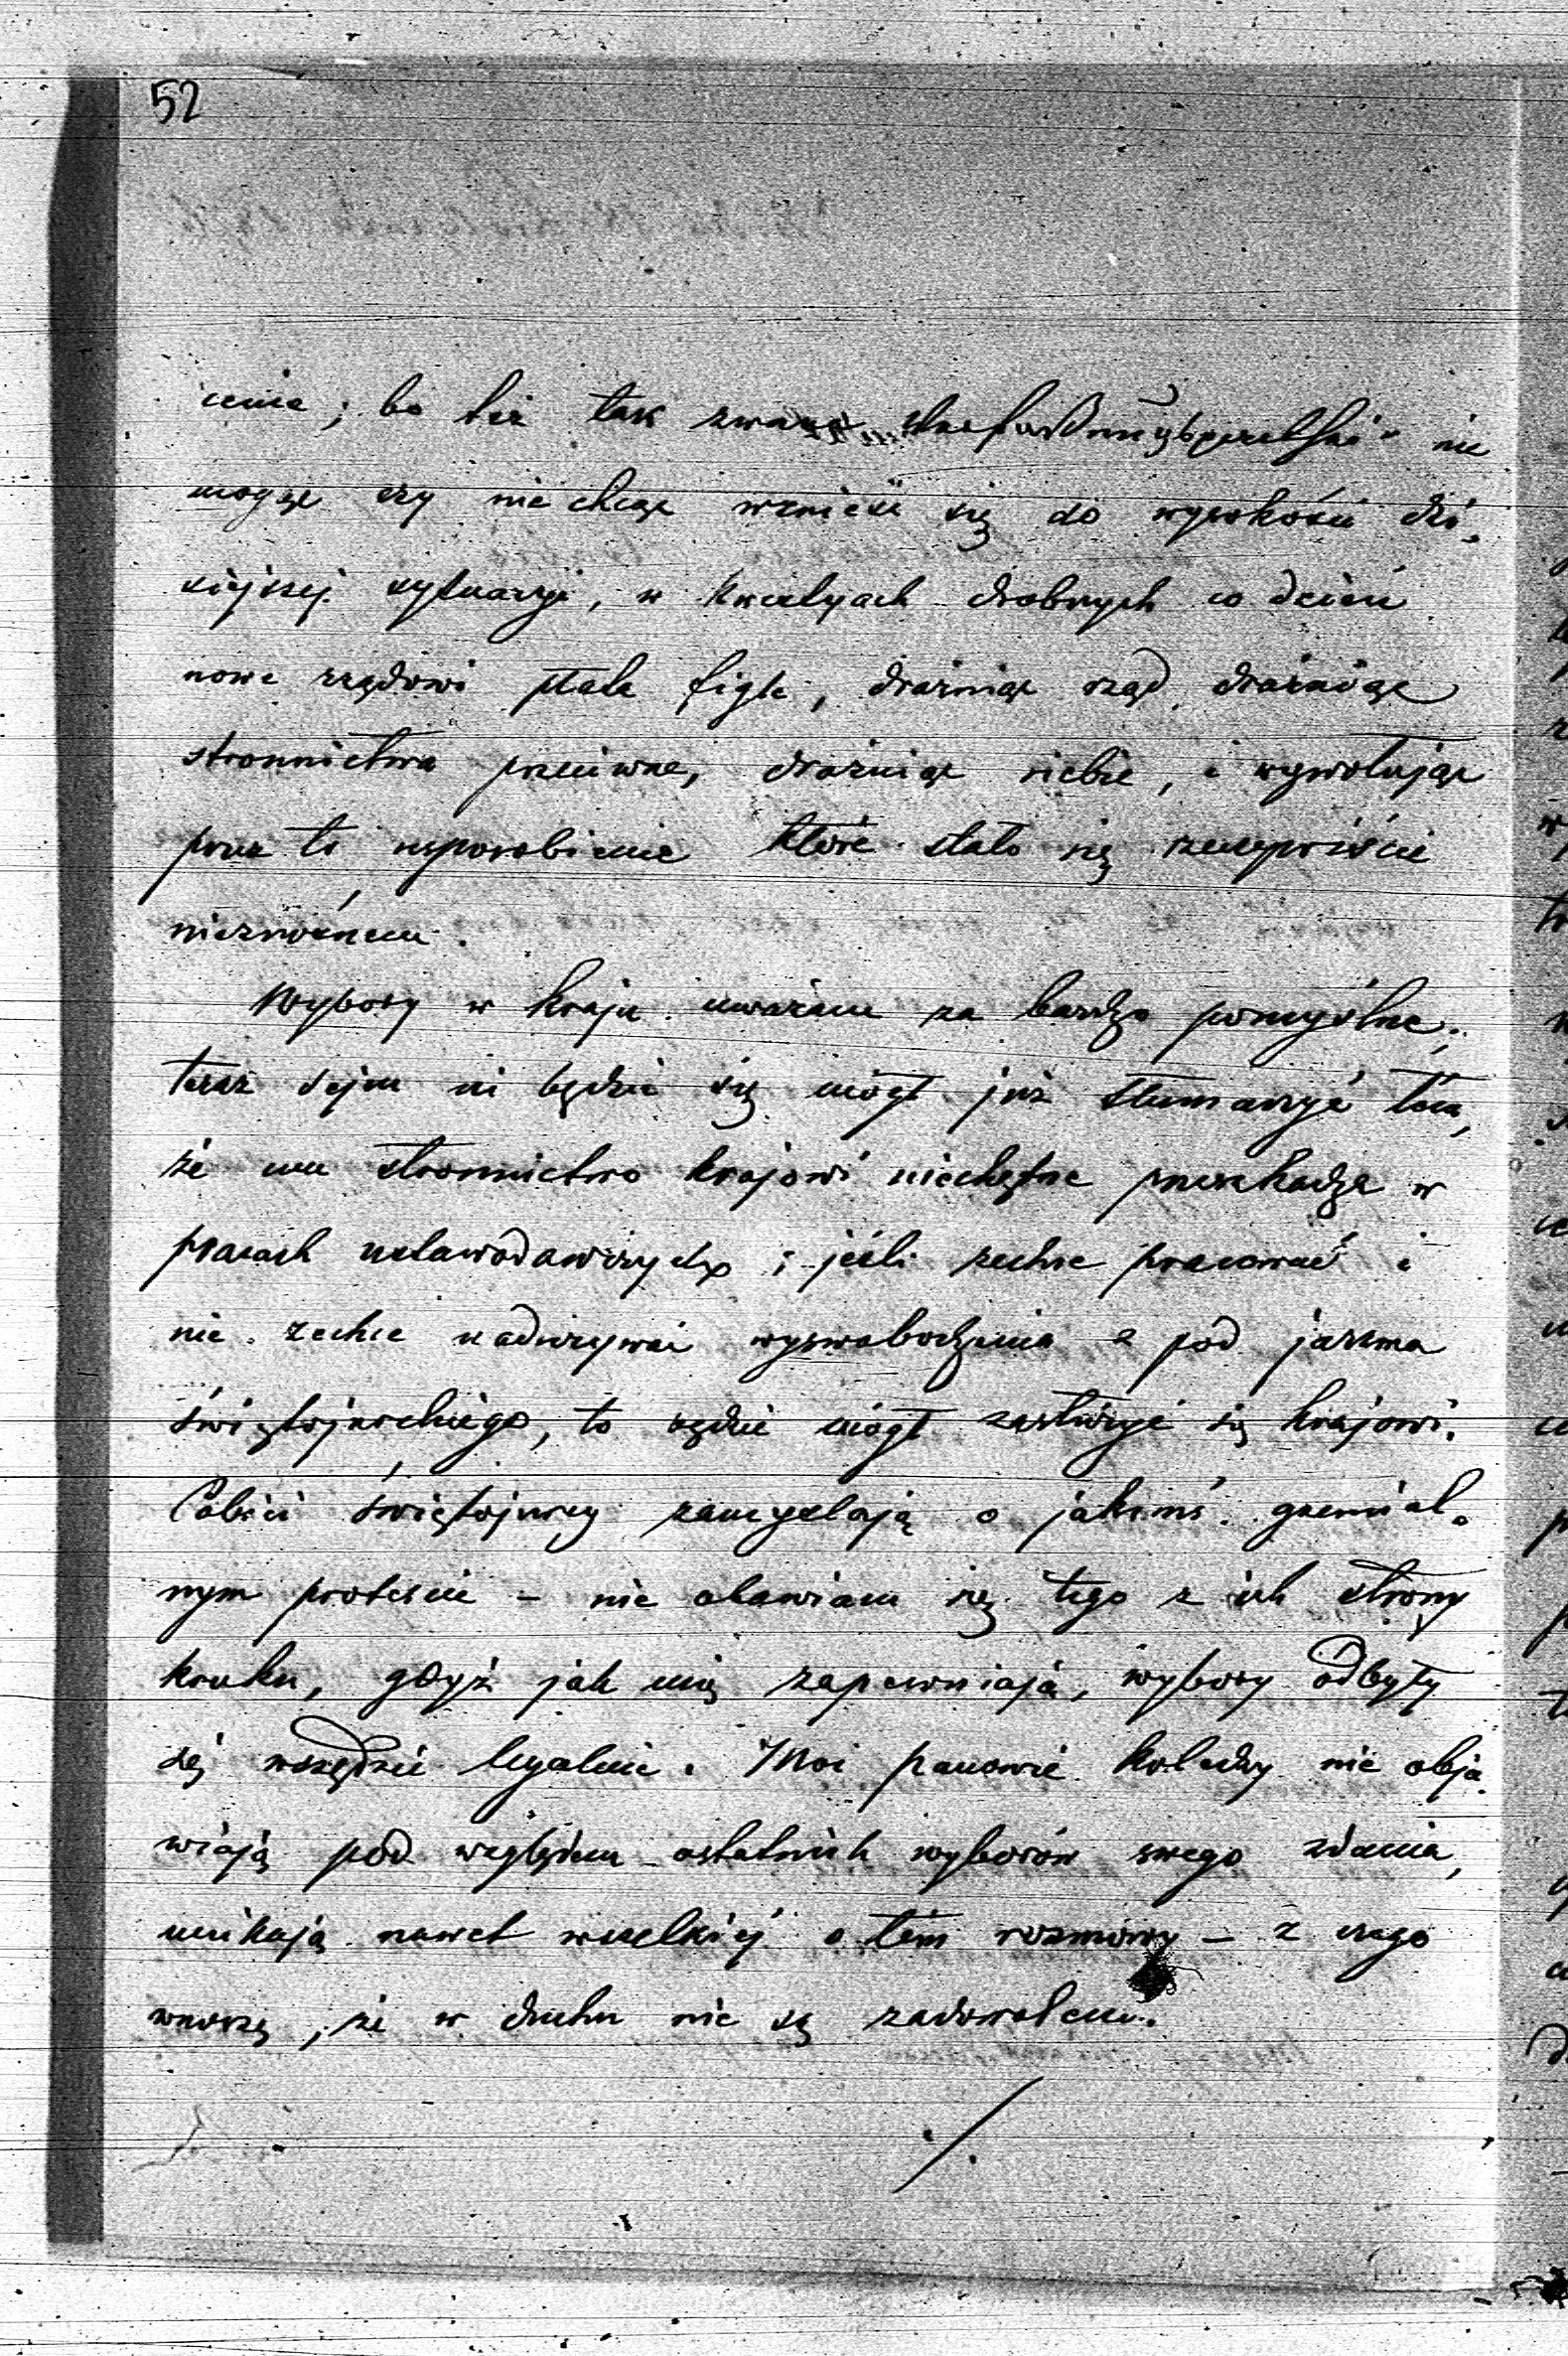 52
cenia; bo też tak zwana
mogąc czy nie chcąc wznieść się do wysokości dzi-
siejszej sytuacyi, w kwestyach drobnych co dzień
nowe rządowi płata figle, drażniąc rząd, drażniąc
stronnictwa przeciwne, drażniąc siebie, i wywołując
przez to usposobienie które stało się rzeczywiście
nieznośnem.
Wybory w kraju uważam za bardzo pomyślne;
teraz sejm ni będzie się mógł już tłumaczyć tém,
że mu stronnictwo krajowi niechętne przeszkadza w
pracach ustawodawczych; jeśli zechce pracować i
nie zechce nadużywać wyswobodzenia z pod jarzma
świętojurskiego, to będzie mógł zasłużyć się krajowi.
świętojurcy zamyślają o jakimś gremial-
nym proteście - nie obawiam się tego z ich strony
kroku, gdyż jak mię zapewniają, wybory odbyły
się wszędzie legalnie. Moi panowie koledzy nie obja-
wiają pod względem ostatnich wyborów swego zdania,
unikają nawet wszelkiéj o tém rozmowy - z czego
wnoszę, że w duchu nie są zadowoleni.
./.